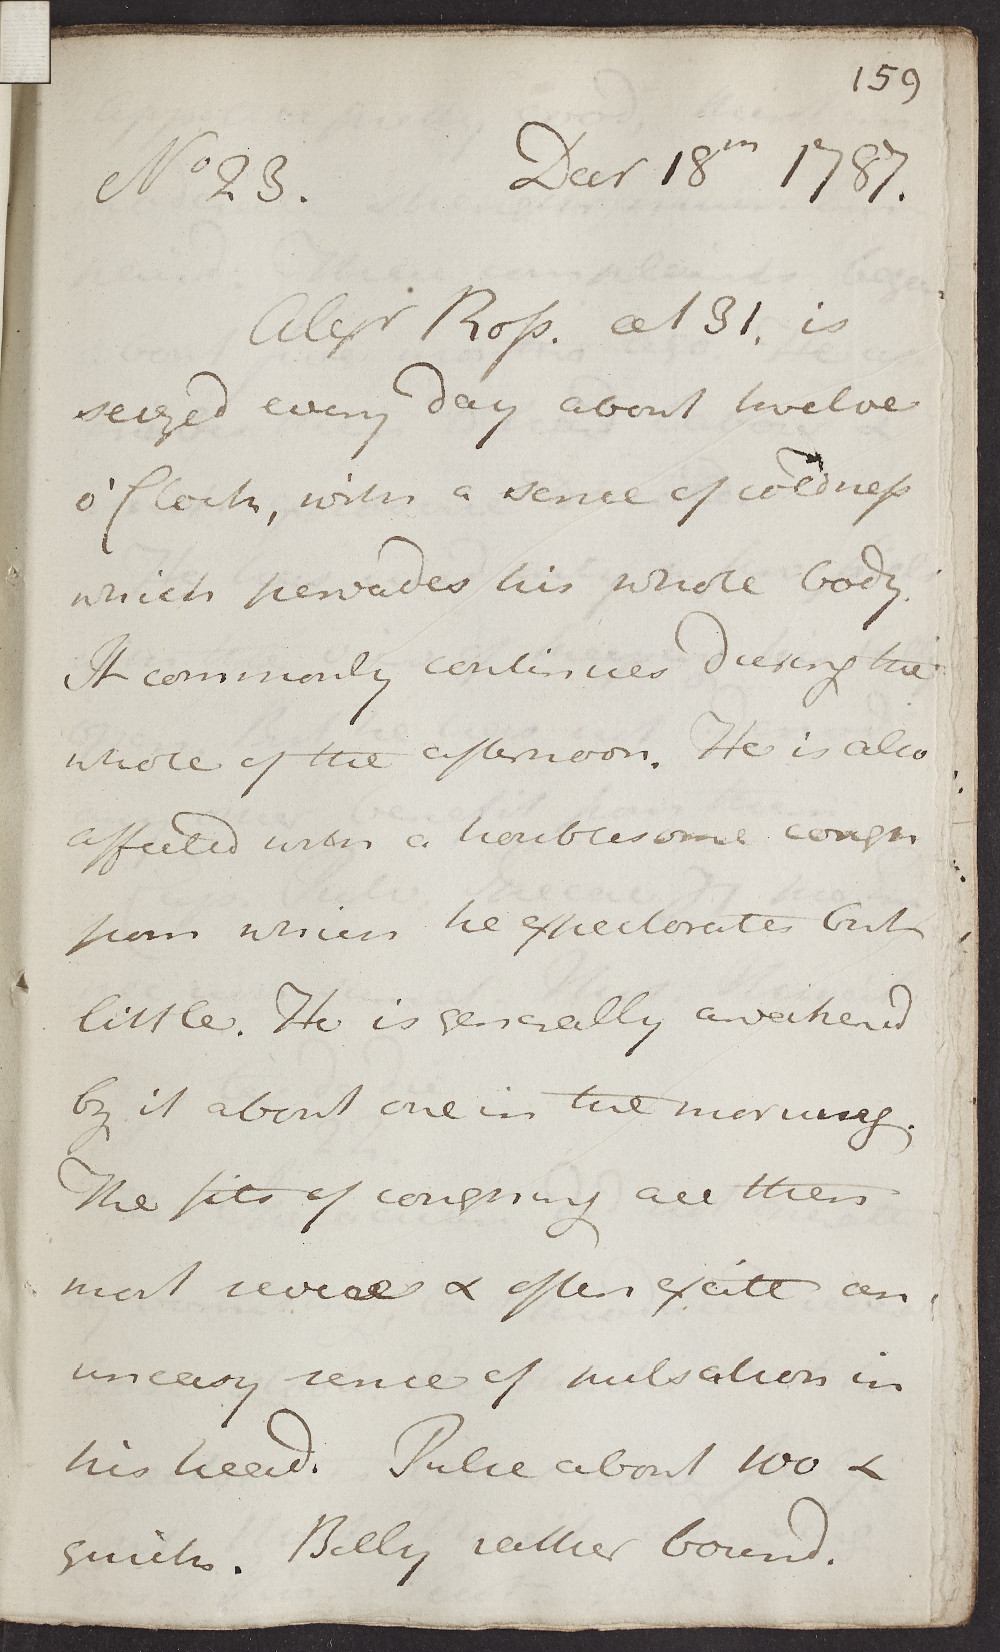 159
No 23. Decr 18th 1787.
Alexr Ross. aet 31. is
seized every day about twelve
o'Clock, with a sense of coldness
which pervades his whole body.
It commonly continues during the
whole of the afternoon. He is also
affected with a troublesome cough
from which he expectorates but
little. He is generally awakened
by it about one in the morning.
The fits of coughing are then
most severe & often excite an
uneasy sense of pulsation in
his head. Pulse about 100 &
quick. Belly rather bound.